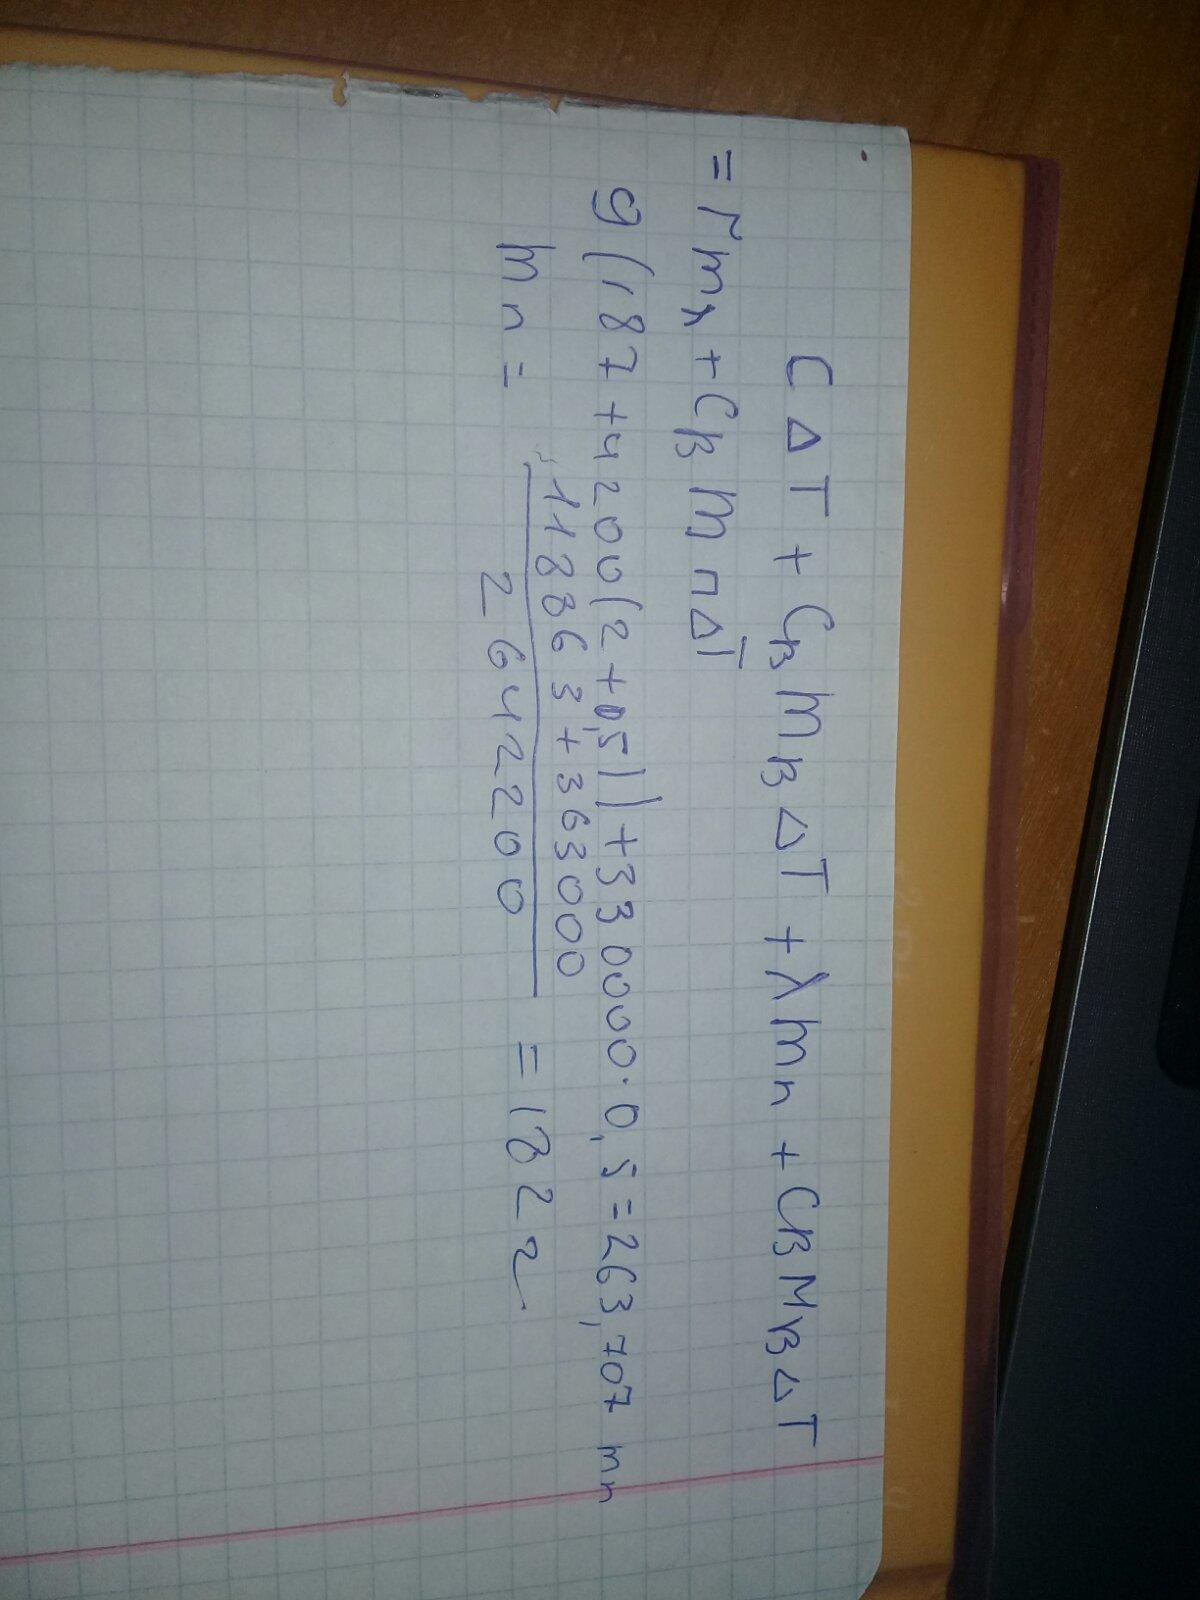 C Δ T + Cв mв Δ T + λ mл + Cв Mв Δ T
= r mλ + Cв m п Δ T
9 (187 + 4200 (2 + 0,5)) + 330000 · 0,5 = 263,707 mп
11886 3 + 363000
mп = = 182 г
2642200